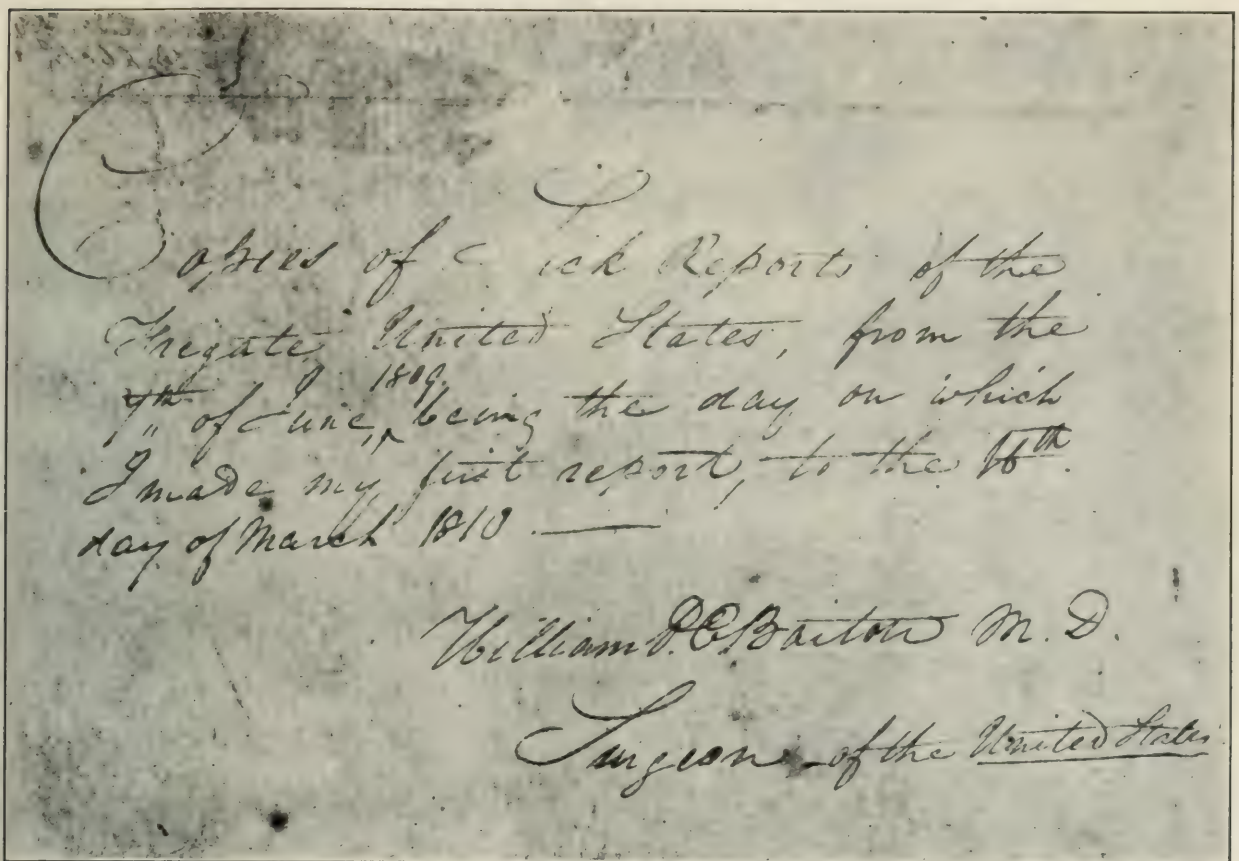 Copies of Sick Reports of the
Frigate United States, from the
7th of June, 1809. being the day on which
I made my first report, to the 16th
day of March 1810 —
William P. C. Barton M. D.
Surgeon of the United States